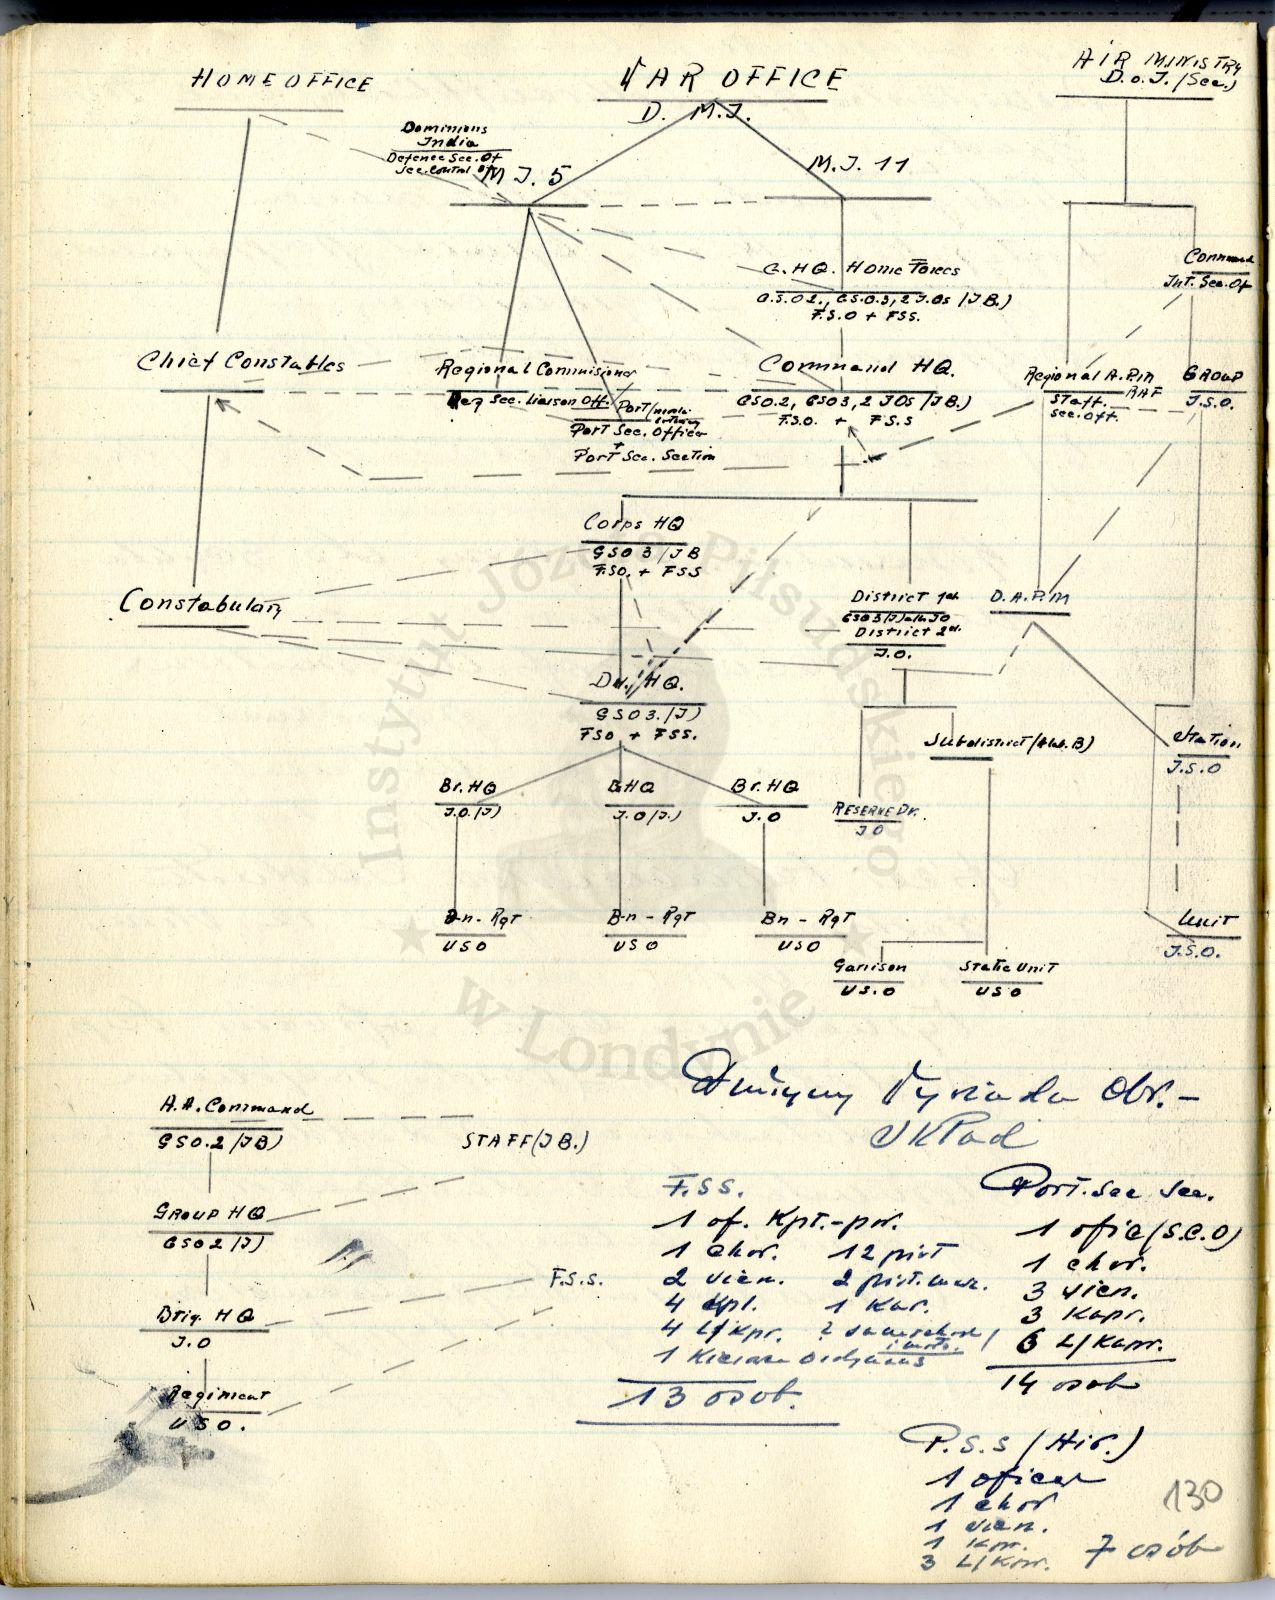 HOME OFFICE
WAR OFFICE
D. M.J.
AIR MINISTRY
D.o.J. (Sec.)
Dominions
India
Defence Sec. Of
Sec. Control Of
M J. 5
M.J. 11
G.HQ. Home Forces
G.S.O2., GS.O.3, 2 J.Os (J B.)
F.S.O + FSS.
Command
Int. Sec. Of
Chief Constables
Regional Commisioner
Reg Sec. Liaison Off.
Port
Port Sec. Officer
+
Port Sec. Section
Command HQ.
GSO.2, GSO3, 2 JOs (J B.)
F.S.O. + F.S.S
Regional A.P.M
RAF
Staff.
Sec. Off.
GROUP
J.S.O.
Corps HQ
GSO 3 (J B
F.SO. + FSS
Constabulary
District 1st
District 2nd.
J.O.
D.A.P.M
Div. HQ.
GSO3. (J)
FSO + FSS.
Subdistrict
Station
J.S.O
Br. HQ
J.O. (J)
BHQ
J.O (J.)
Br. HQ
J.O
RESERVE Dv.
JO
Bn - Rgt
USO
Bn - Rgt
USO
Bn - Rgt
USO
Unit
J.S.O.
Garrison
US.O
Static Unit
USO
Instytut Józefa Piłsudskiego
w Londynie
A.A. Command
GSO.2 (JB)
STAFF (J B.)
GROUP HQ
GSO2 (J)
F.S.S.
Brig. HQ
J.O
Regiment
USO.
Drużyny Wywiadu Obr.-
Skład
F.SS.
1 of. Kpt.-por.
1 chor. 12 pist
2 sierż. 2 pist. masz.
4 kpl. 1 Kar.
4 L/Kpr. 2
1
13 osob.
Port. Sec Sec.
1 ofic (S.C.O)
1 chor.
3 sierż.
3 Kapr.
6 L/Kapr.
14 osob
P.S.S (Air.)
1 oficer
1 chor
1 sierż.
1 Kpr.
3 L/Kpr. 7 osób
130